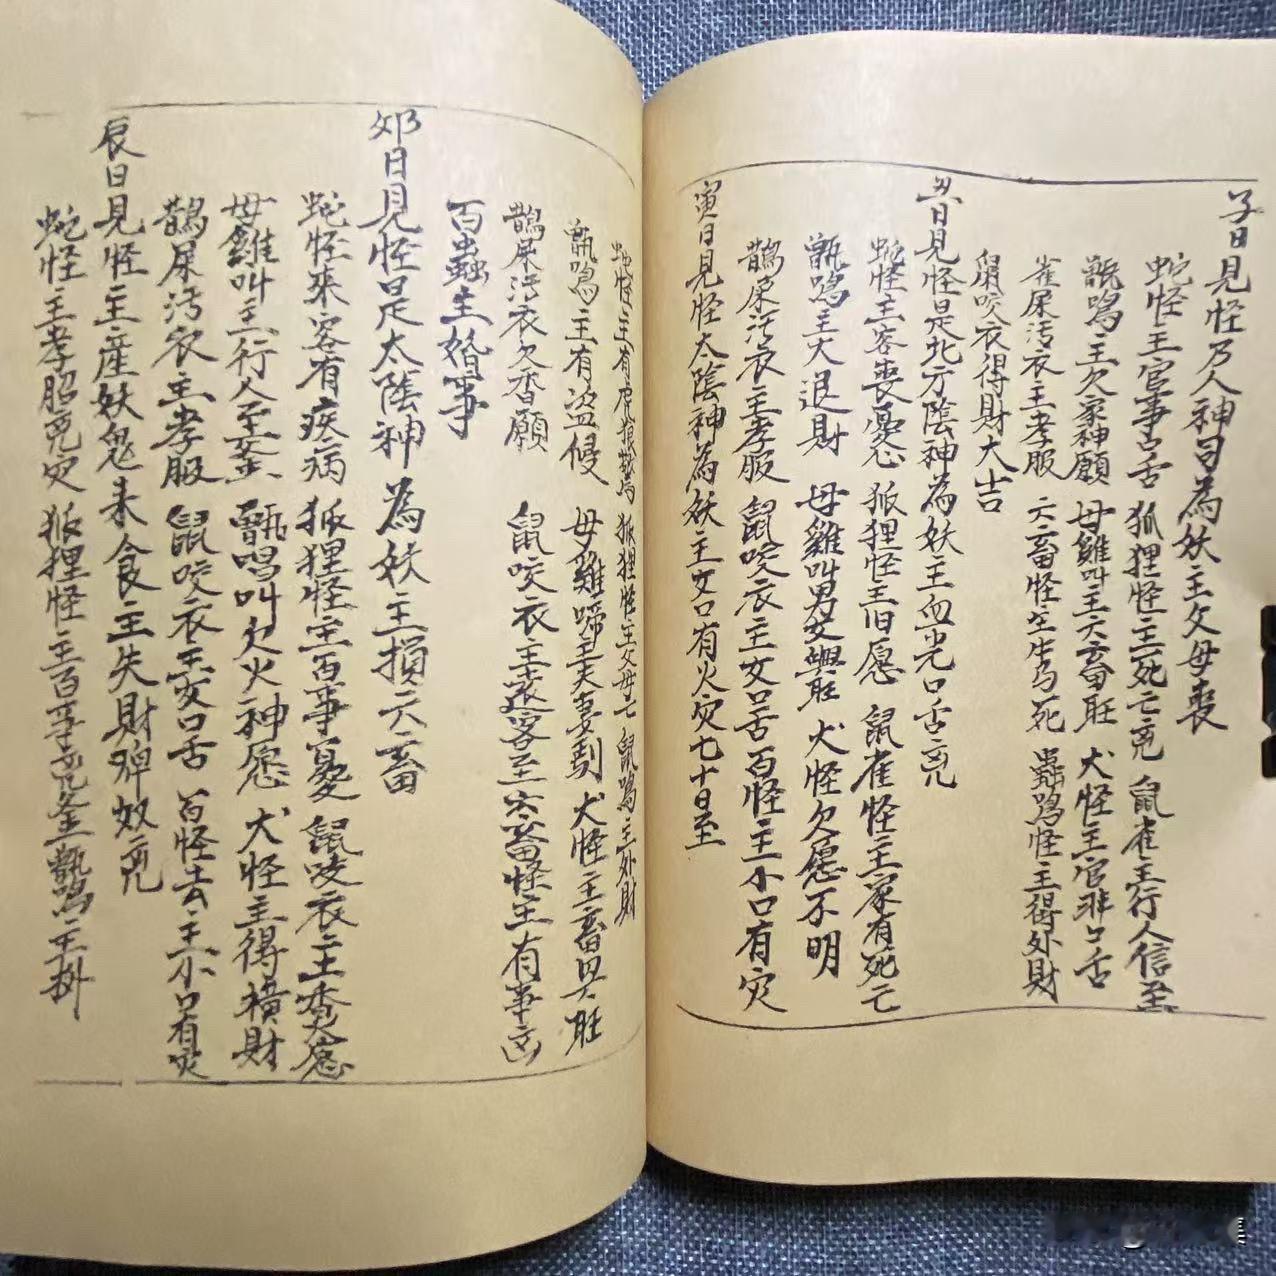 子日見怪乃人神司為妖主父母丧
蛇怪主官事口舌 狐狸怪主死亡兇 鼠雀主行人信至
甑鳴主欠家神願 母雞叫主六畜旺 犬怪主官非口舌
雀屎污衣主孝服 六畜怪主牛馬死 蟲鸣怪主得外財
鼠咬衣得財大吉
丑日見怪是北方陰神為妖主血光口舌兇
蛇怪主客喪憂 狐狸怪主旧愿 鼠雀怪主家有死亡
甑鳴主大退財 母雞叫男女興旺 犬怪欠愿不明
鵲屎污衣主孝服 鼠咬衣主女口舌 百怪主小口有灾
寅日見怪太陰神為妖主女口有火灾七十日至
蛇怪主有 狐狸怪主父母亡 鼠鳴主外財
甑鳴主有盜侵 母雞啼主夫妻 犬怪主畜興旺
鵲屎污衣欠香願 鼠咬衣主遠客至 六畜怪主有事凶
百蟲主婚事
卯日見怪是太陰神為妖主損六畜
蛇怪來客有疾病 狐狸怪主百事憂 鼠咬衣主愿
母雞叫主行人至 甑唱叫欠火神愿 犬怪主得橫財
鵲屎污衣主孝服 鼠咬衣主女口舌 百怪去主小口有灾
辰日見怪主産妖鬼来食主失財婢奴兇
蛇怪主孝服兇灾 狐狸怪主百事兇 釜甑鳴主